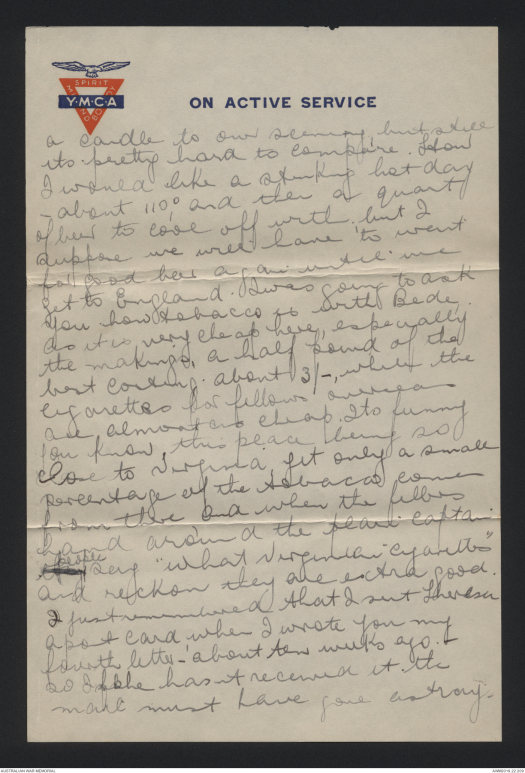 SPIRIT
MIND BODY
Y·M·C·A
ON ACTIVE SERVICE
a candle to our scenery, but still
its pretty hard to compare. How
I would like a stinking hot day
- about 110° and then a quart
of beer to cool off with but I
suppose we will have to wait
for good beer again until we
get to England. I was going to ask
you how tobacco is with Bede,
as it is very cheap here, especially
the makings, a half pound of the
best costing about 3/-, while the
cigarettes for fellows overseas
are almost as cheap. Its funny
you know, this place being so
close to Virginia, yet only a small
percentage of the tobacco comes
from there and when the fellows
hand around the
people say "what Virginian cigarettes"
and reckon they are extra good.
I just remembered that I sent Theresa
a post card when I wrote you my
fourth letter - about two weeks ago. -
so if she hasn't received it the
mail must have gone astray.
AUSTRALIAN WAR MEMORIAL